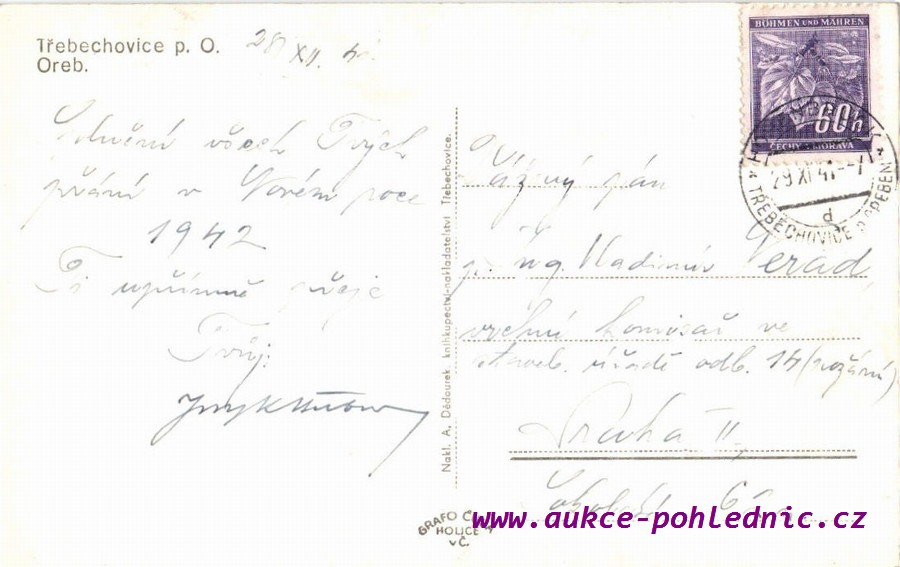 Třebechovice p. O.
Oreb.
28 XII.
Splnění všech Tvých
přání v Novém roce
1942
Ti upřímně přeje
Tvůj:
Nakl. A. Dědourek knihkupectví-nakladatelství Třebechovice.
GRAFO
HOLICE
v Č.
BÖHMEN UND MÄHREN
60 h
ČECHY A MORAVA
29 XII 41 - 7
d
TŘEBECHOVICE
Vážený pán
p. Ing. Vladimír
vrchní komisař ve
staveb. úřadě odb. 14
Praha II,
www.aukce-pohlednic.cz